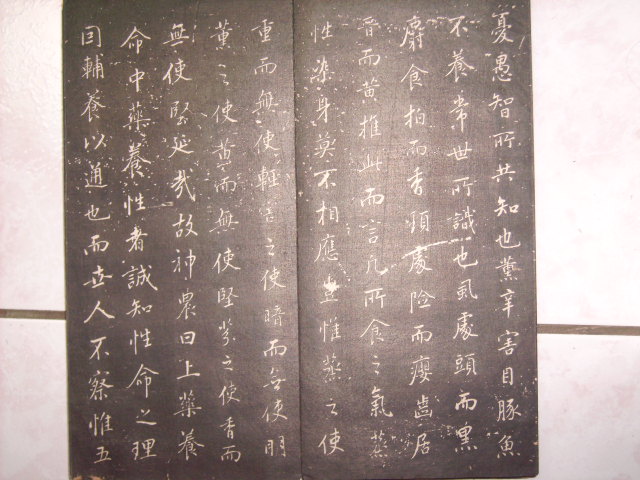 憂愚智所共知也薰辛害目豚魚
不養常世所識也虱處頭而黑
麝食柏而香頸處險而癭齒居
晉而黃推此而言凡所食之氣蒸
性染身莫不相應豈惟蒸之使
重而無使輕害之使暗而無使明
薰之使黃而無使堅芬之使香而
無使堅延哉故神農曰上藥養
命中藥養性者誠知性命之理
因輔養以通也而世人不察惟五